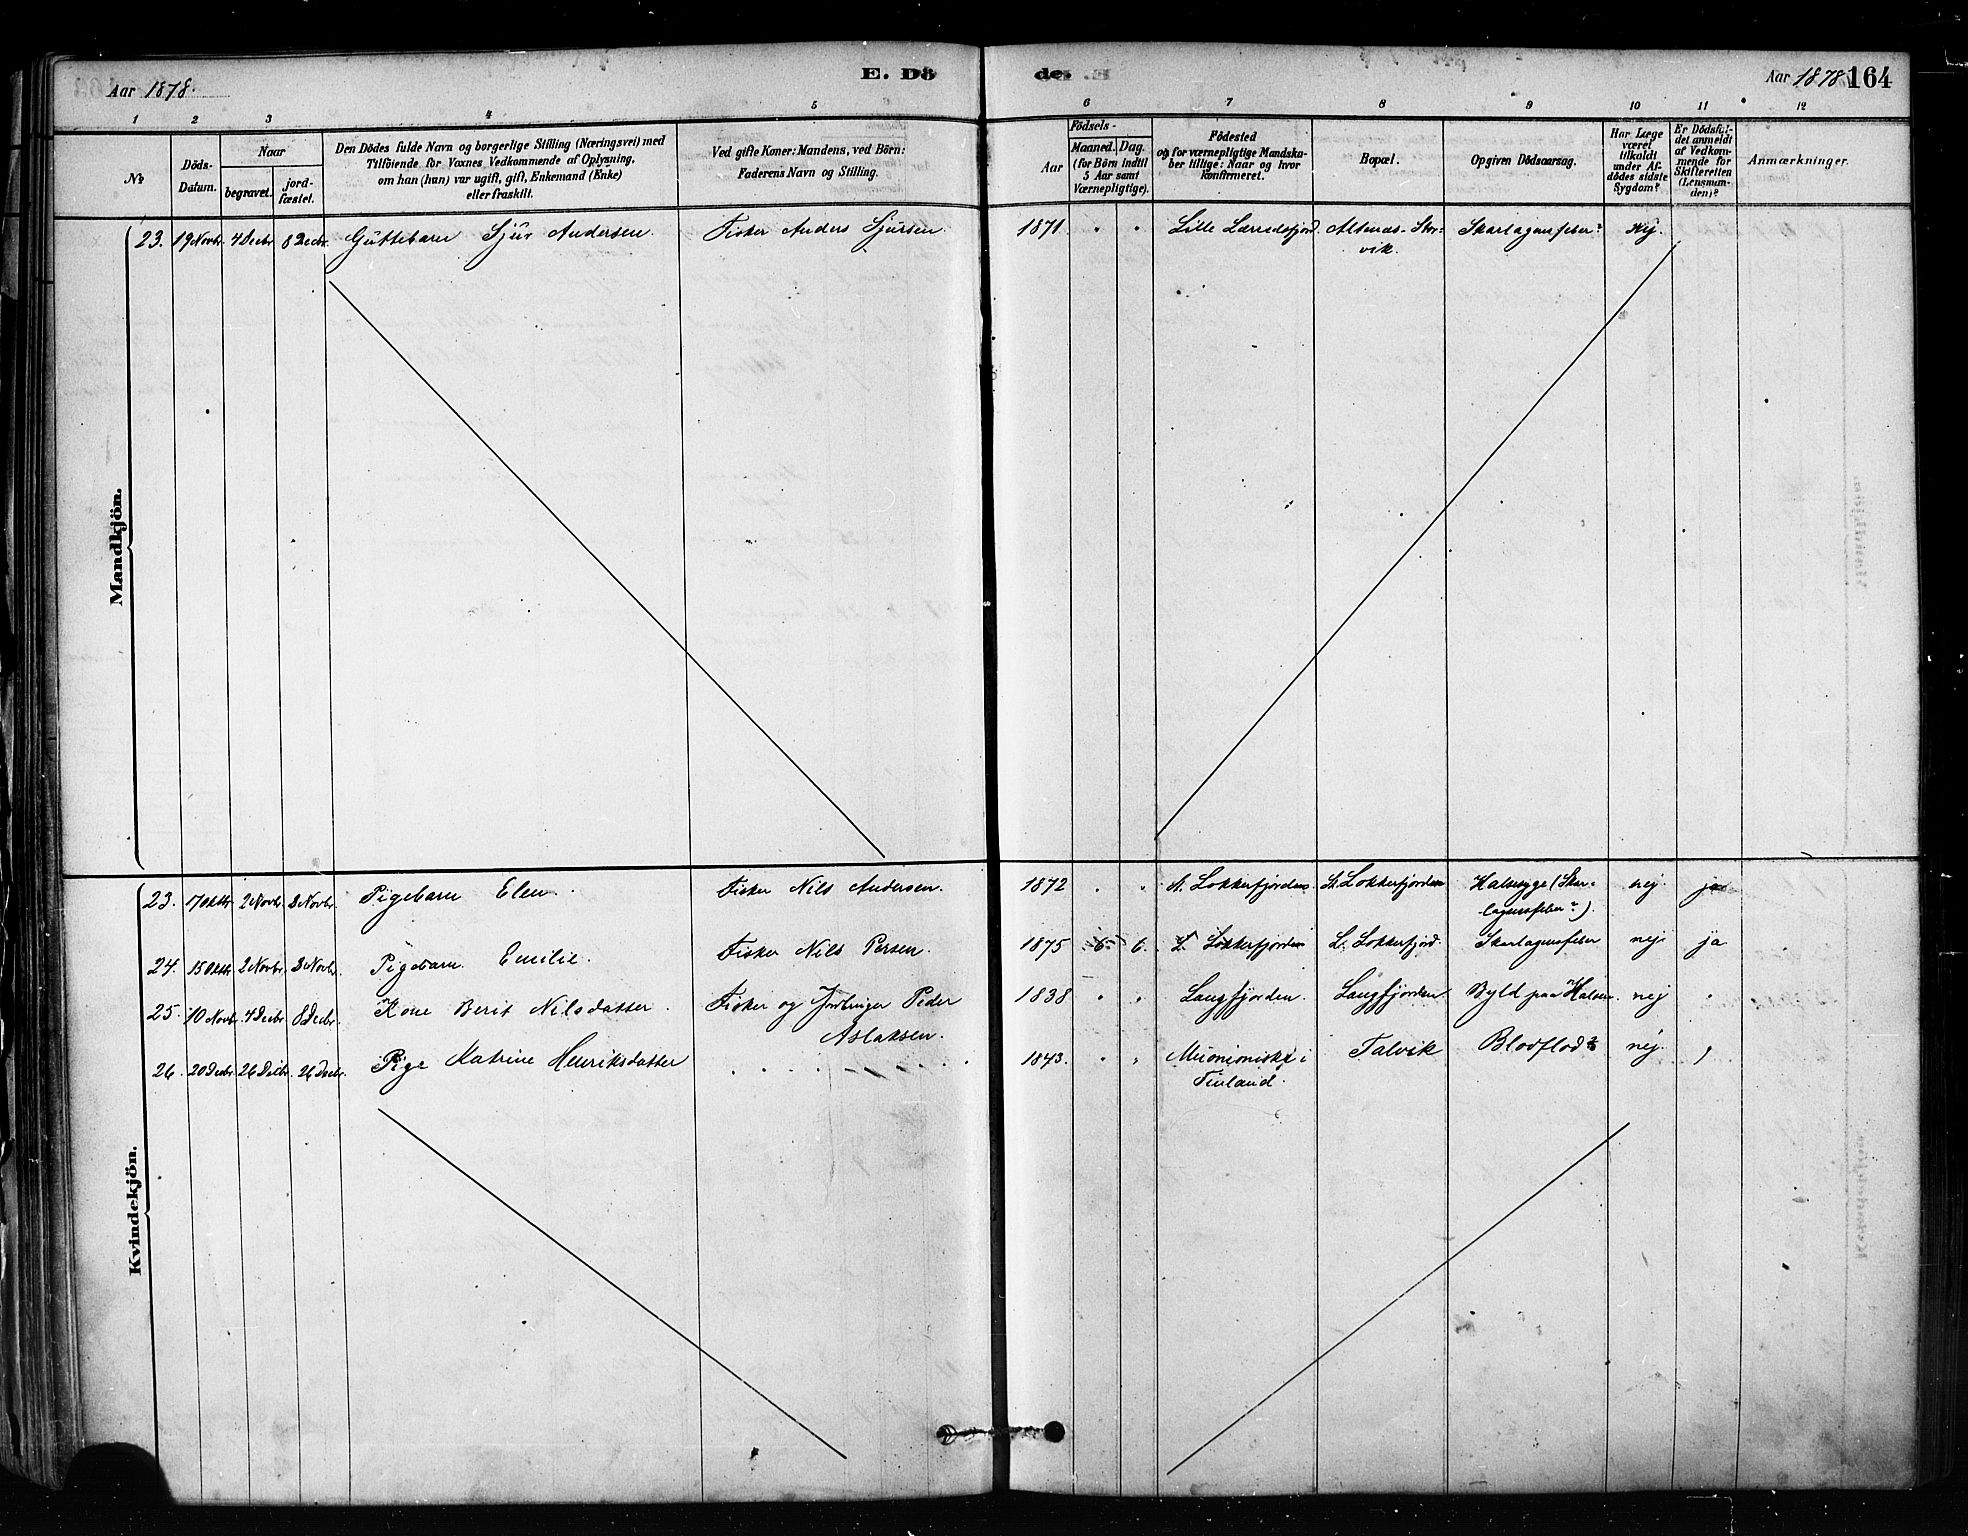 Aar 1878.
E. Dö
de.
Aar 1878
164
1 2 3 4 5 6 7 8 9 10 11 12
№
Döds-
Datum.
Naar
begravet.
jord-
fæstet.
Den Dödes fulde Navn og borgerlige Stilling (Næringsvei) med
Tilföiende for Voxnes Vedkommende af Oplysning,
om han (hun) var ugift, gift, Enkemand (Enke)
eller fraskilt.
Ved gifte Koner: Mandens, ved Börn:
Faderens Navn og Stilling.
Födsels-
Aar
Maaned.
Dag.
(for Börn indtil
5 Aar samt
Værnepligtige).
Födested
og for værnepligtige Mandska-
ber tillige: Naar og hvor
konfirmeret.
Bopæl.
Opgiven Dödsaarsag.
Har Læge
været
tilkaldt
under Af-
dödes sidste
Sygdom?
Er Dödsfal-
det anmeldt
af Vedkom-
mende for
Skifteretten
(Lensman-
den)?
Anmærkninger.
Mandkjön.
23. 19 Novbr. 4 Decbr. 8 Decbr. Guttebarn Sjur Andersen. Fisker Anders Sjursen. 1871. " " Lille Lerredsfjord Altenæs-Stor- Skarlagensfeber? Nej.
vik.
Kvindekjön.
23. 17 Oktbr 2 Novbr. 3 Novbr. Pigebarn Elen. Fisker Nils Andersen. 1872 " " St. Lokkerfjorden St. Lokkerfjorden Halssyge (Skar- nej. ja
lagensfeber?).
24. 15 Oktbr 2 Novbr. 3 Novbr. Pigebarn Emilie. Fisker Nils Persen. 1875 6 6. L. Lokkerfjorden L. Lokkerfjord. Skarlagensfeber nej ja
25. 10 Novbr. 4 Decbr. 8 Decbr. Kone Berit Nilsdatter. Fisker og Jordbruger Peder 1838 " " Langfjorden. Langfjorden. Byld paa Halsen. nej "
Aslaksen.
26. 20 Decbr. 26 Decbr. 26 Decbr. Pige Katrine Henriksdatter 1843. " " Muonioniska i Talvik Blodflod? nej. "
Finland.